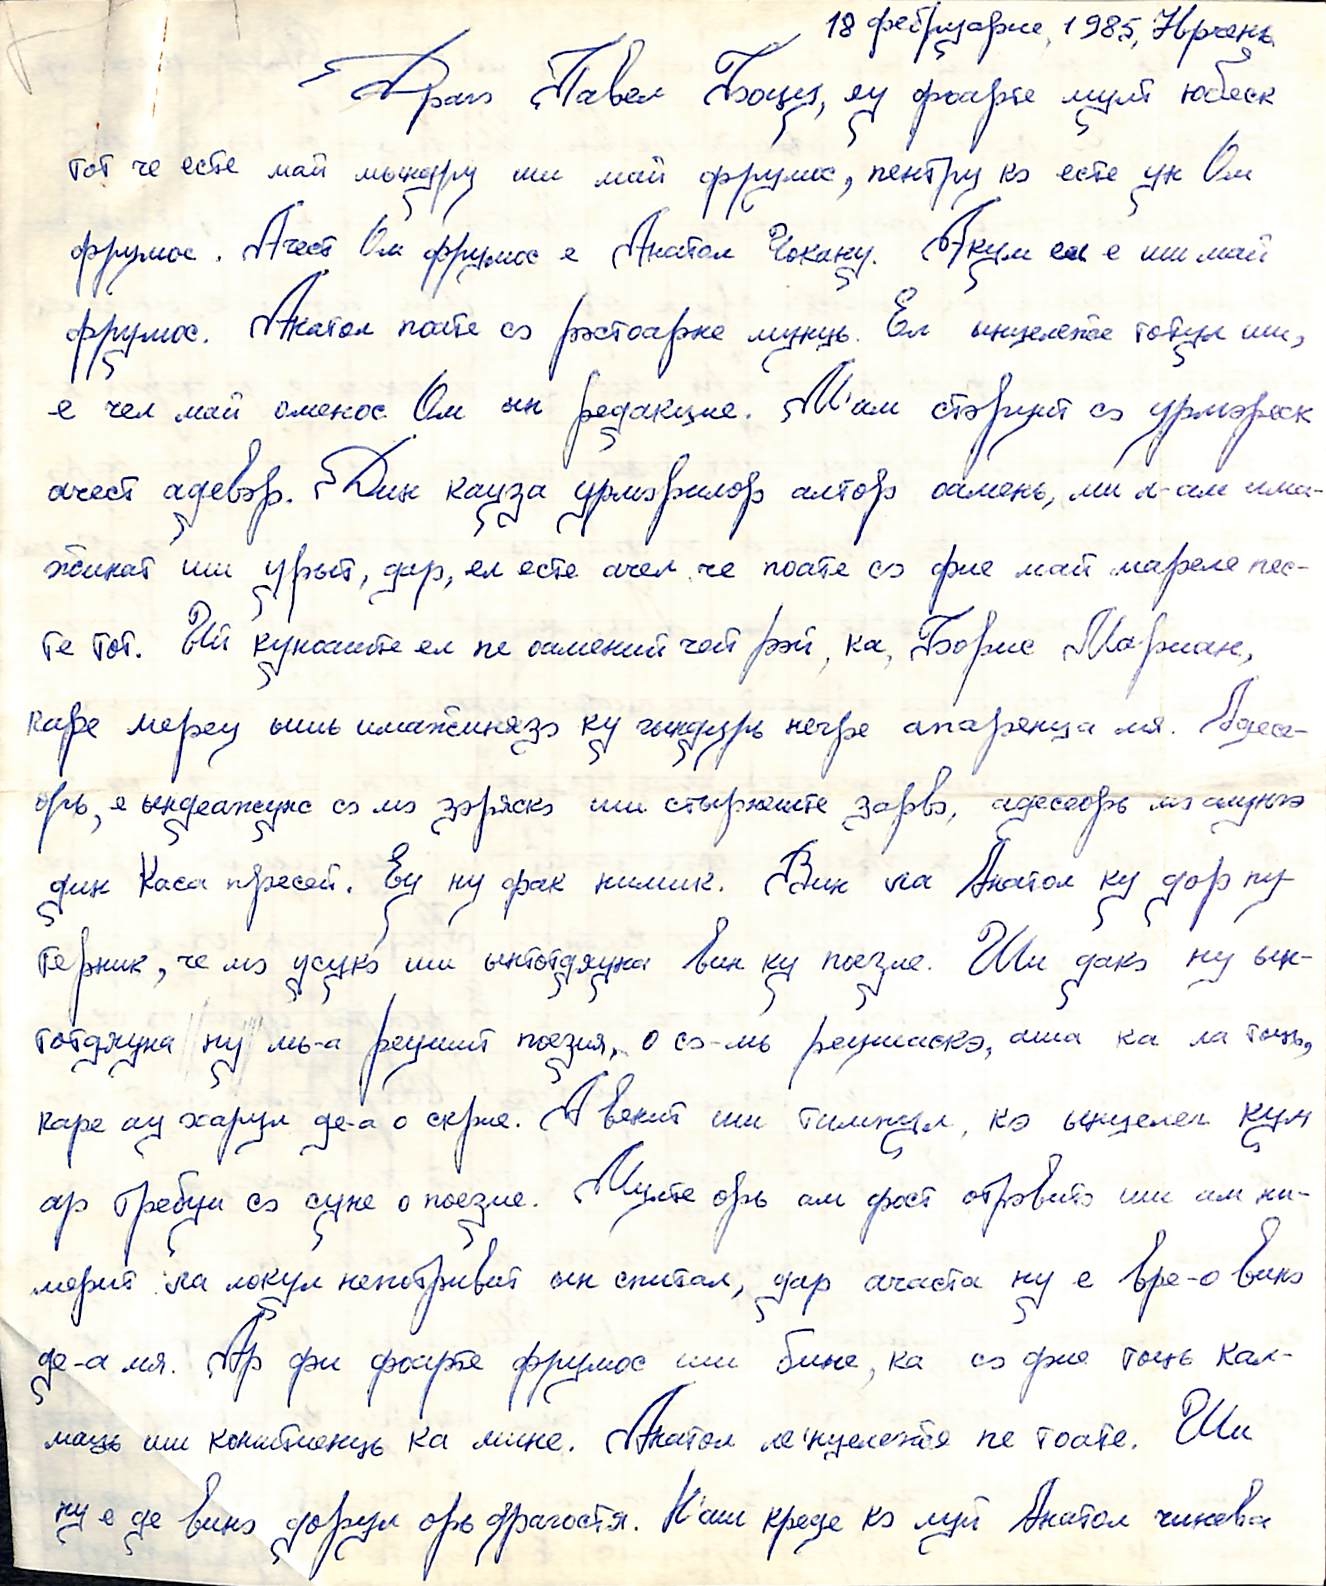 18 фебруарие, 1985, Нрчень
Драгэ Павел Боцу, еу фоарте мулт юбеск
тот че есте май мындру ши май фрумос, пентру кэ есте ун Ом
фрумос. Ачест Ом фрумос е Анатол Чокану. Акум ел е ши май
фрумос. Анатол поате сэ рэстоарне мунць. Ел ынцелеӂе тотул ши,
е чел май оменос Ом ын редакцие. М'ам стэруит сэ урмэреск
ачест адевэр. Дин кауза урмэрилор алтор оамень, ми л-ам има-
ӂинат ши урыт, дар, ел есте ачел че поате сэ фие май мареле пес-
те тот. Ый куноаште ел пе оамений чей рэй, ка, Борис Мариан,
каре мереу ышь имаӂинязэ ку гындурь негре апаренца мя. Адесе-
орь, е ындеажунс сэ мэ зэряскэ ши стырнеште зарвэ, адесеорь мэ алунгэ
дин Каса пресей. Еу ну фак нимик. Вин ла Анатол ку дор пу-
терник, че мэ усукэ ши ынтотдяуна вин ку поезие. Ши дакэ ну ын-
тотдяуна ну мь-а реушит поезия, о сэ-мь реушаскэ, аша ка ла тоць,
каре ау харул де-а о скрие. А венит ши тимпул, кэ ынцелег кум
ар требуи сэ суне о поезие. Мулте орь ам фост отрэвитэ ши ам ни-
мерит ла локул непотривит ын спитал, дар ачаста ну е вре-о винэ
де-а мя. Ар фи фоарте фрумос ши бине, ка сэ фие тоць кал-
маць ши конштиенць ка мине. Анатол ле'нцелеӂе пе тоате. Ши
ну е де винэ дорул орь драгостя. Н'аш креде кэ луй Анатол чинева